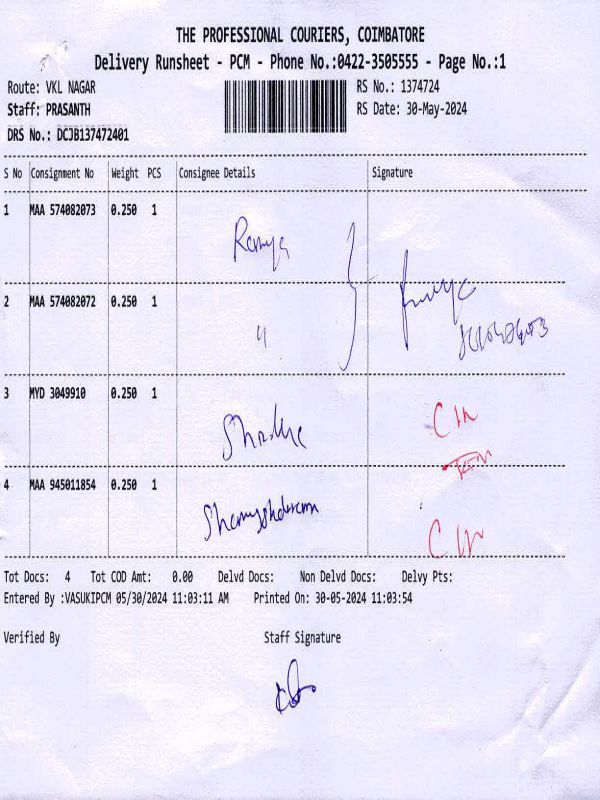 THE PROFESSIONAL COURIERS, COIMBATORE
Delivery Runsheet - PCM - Phone No.:0422-3505555 - Page No.:1
Route: VKL NAGAR RS No.: 1374724
Staff: PRASANTH RS Date: 30-May-2024
DRS No.: DCJB137472401
S No Consignment No Weight PCS Consignee Details Signature
1 MAA 574082073 0.250 1
Ramya
2 MAA 574082072 0.250 1
"
3 MYD 3049910 0.250 1
4 MAA 945011854 0.250 1
Tot Docs: 4 Tot COD Amt: 0.00 Delvd Docs: Non Delvd Docs: Delvy Pts:
Entered By :VASUKIPCM 05/30/2024 11:03:11 AM Printed On: 30-05-2024 11:03:54
Verified By Staff Signature